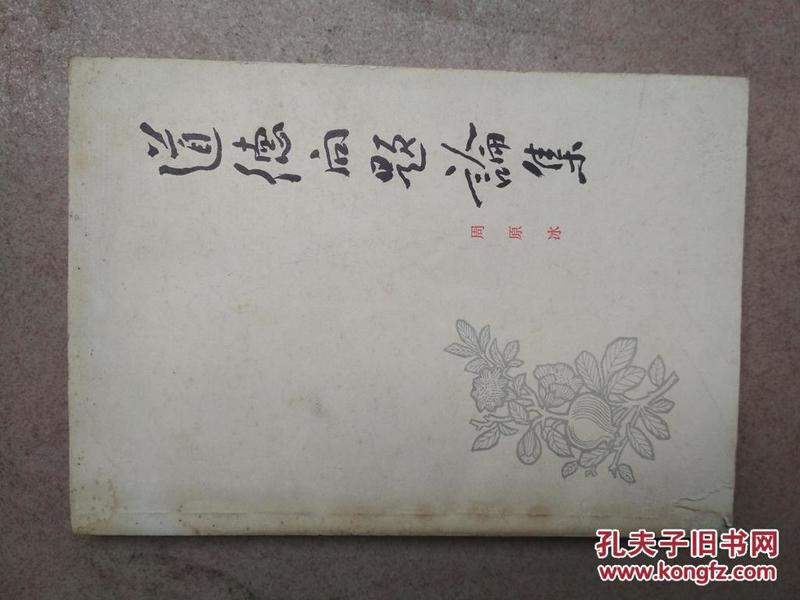 道德问题論集
周原冰
孔夫子旧书网
www.kongfz.com